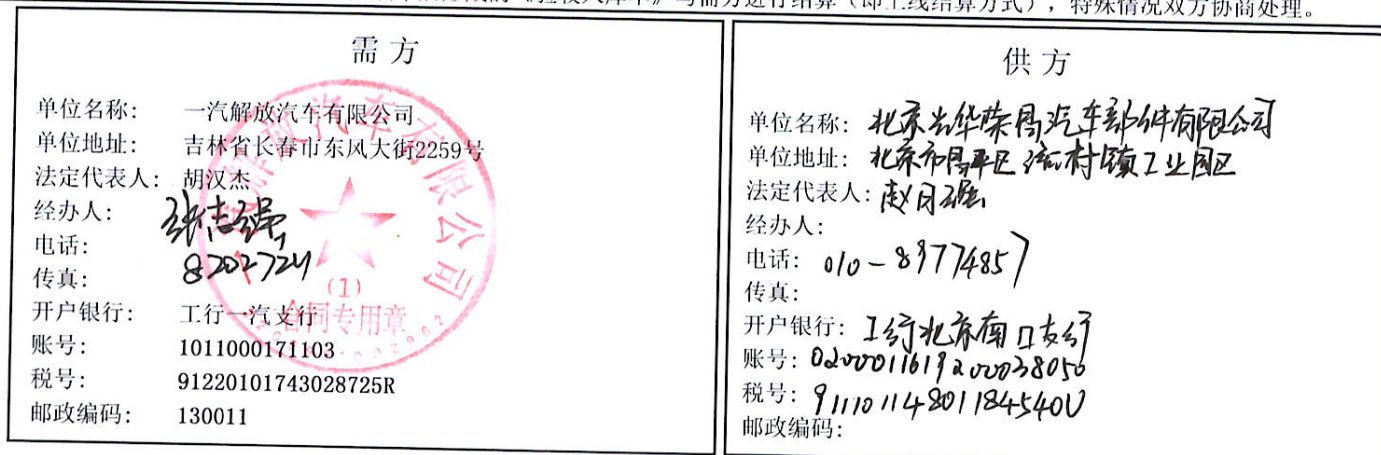 《验收入库单》与需方进行结算（即上线结算方式），特殊情况双方协商处理。
需方
单位名称： 一汽解放汽车有限公司
单位地址： 吉林省长春市东风大街2259号
法定代表人： 胡汉杰
经办人： 张志强
电话： 8202724
传真：
开户银行： 工行一汽支行
账号： 1011000171103
税号： 91220101743028725R
邮政编码： 130011
解放汽车有限公司
(1)
合同专用章
供方
单位名称： 北京光华荣昌汽车部件有限公司
单位地址： 北京市昌平区流村镇工业园区
法定代表人： 赵同强
经办人：
电话： 010-89774857
传真：
开户银行： 工行北京南口支行
账号： 0200011619200038050
税号： 91110114801184540U
邮政编码：